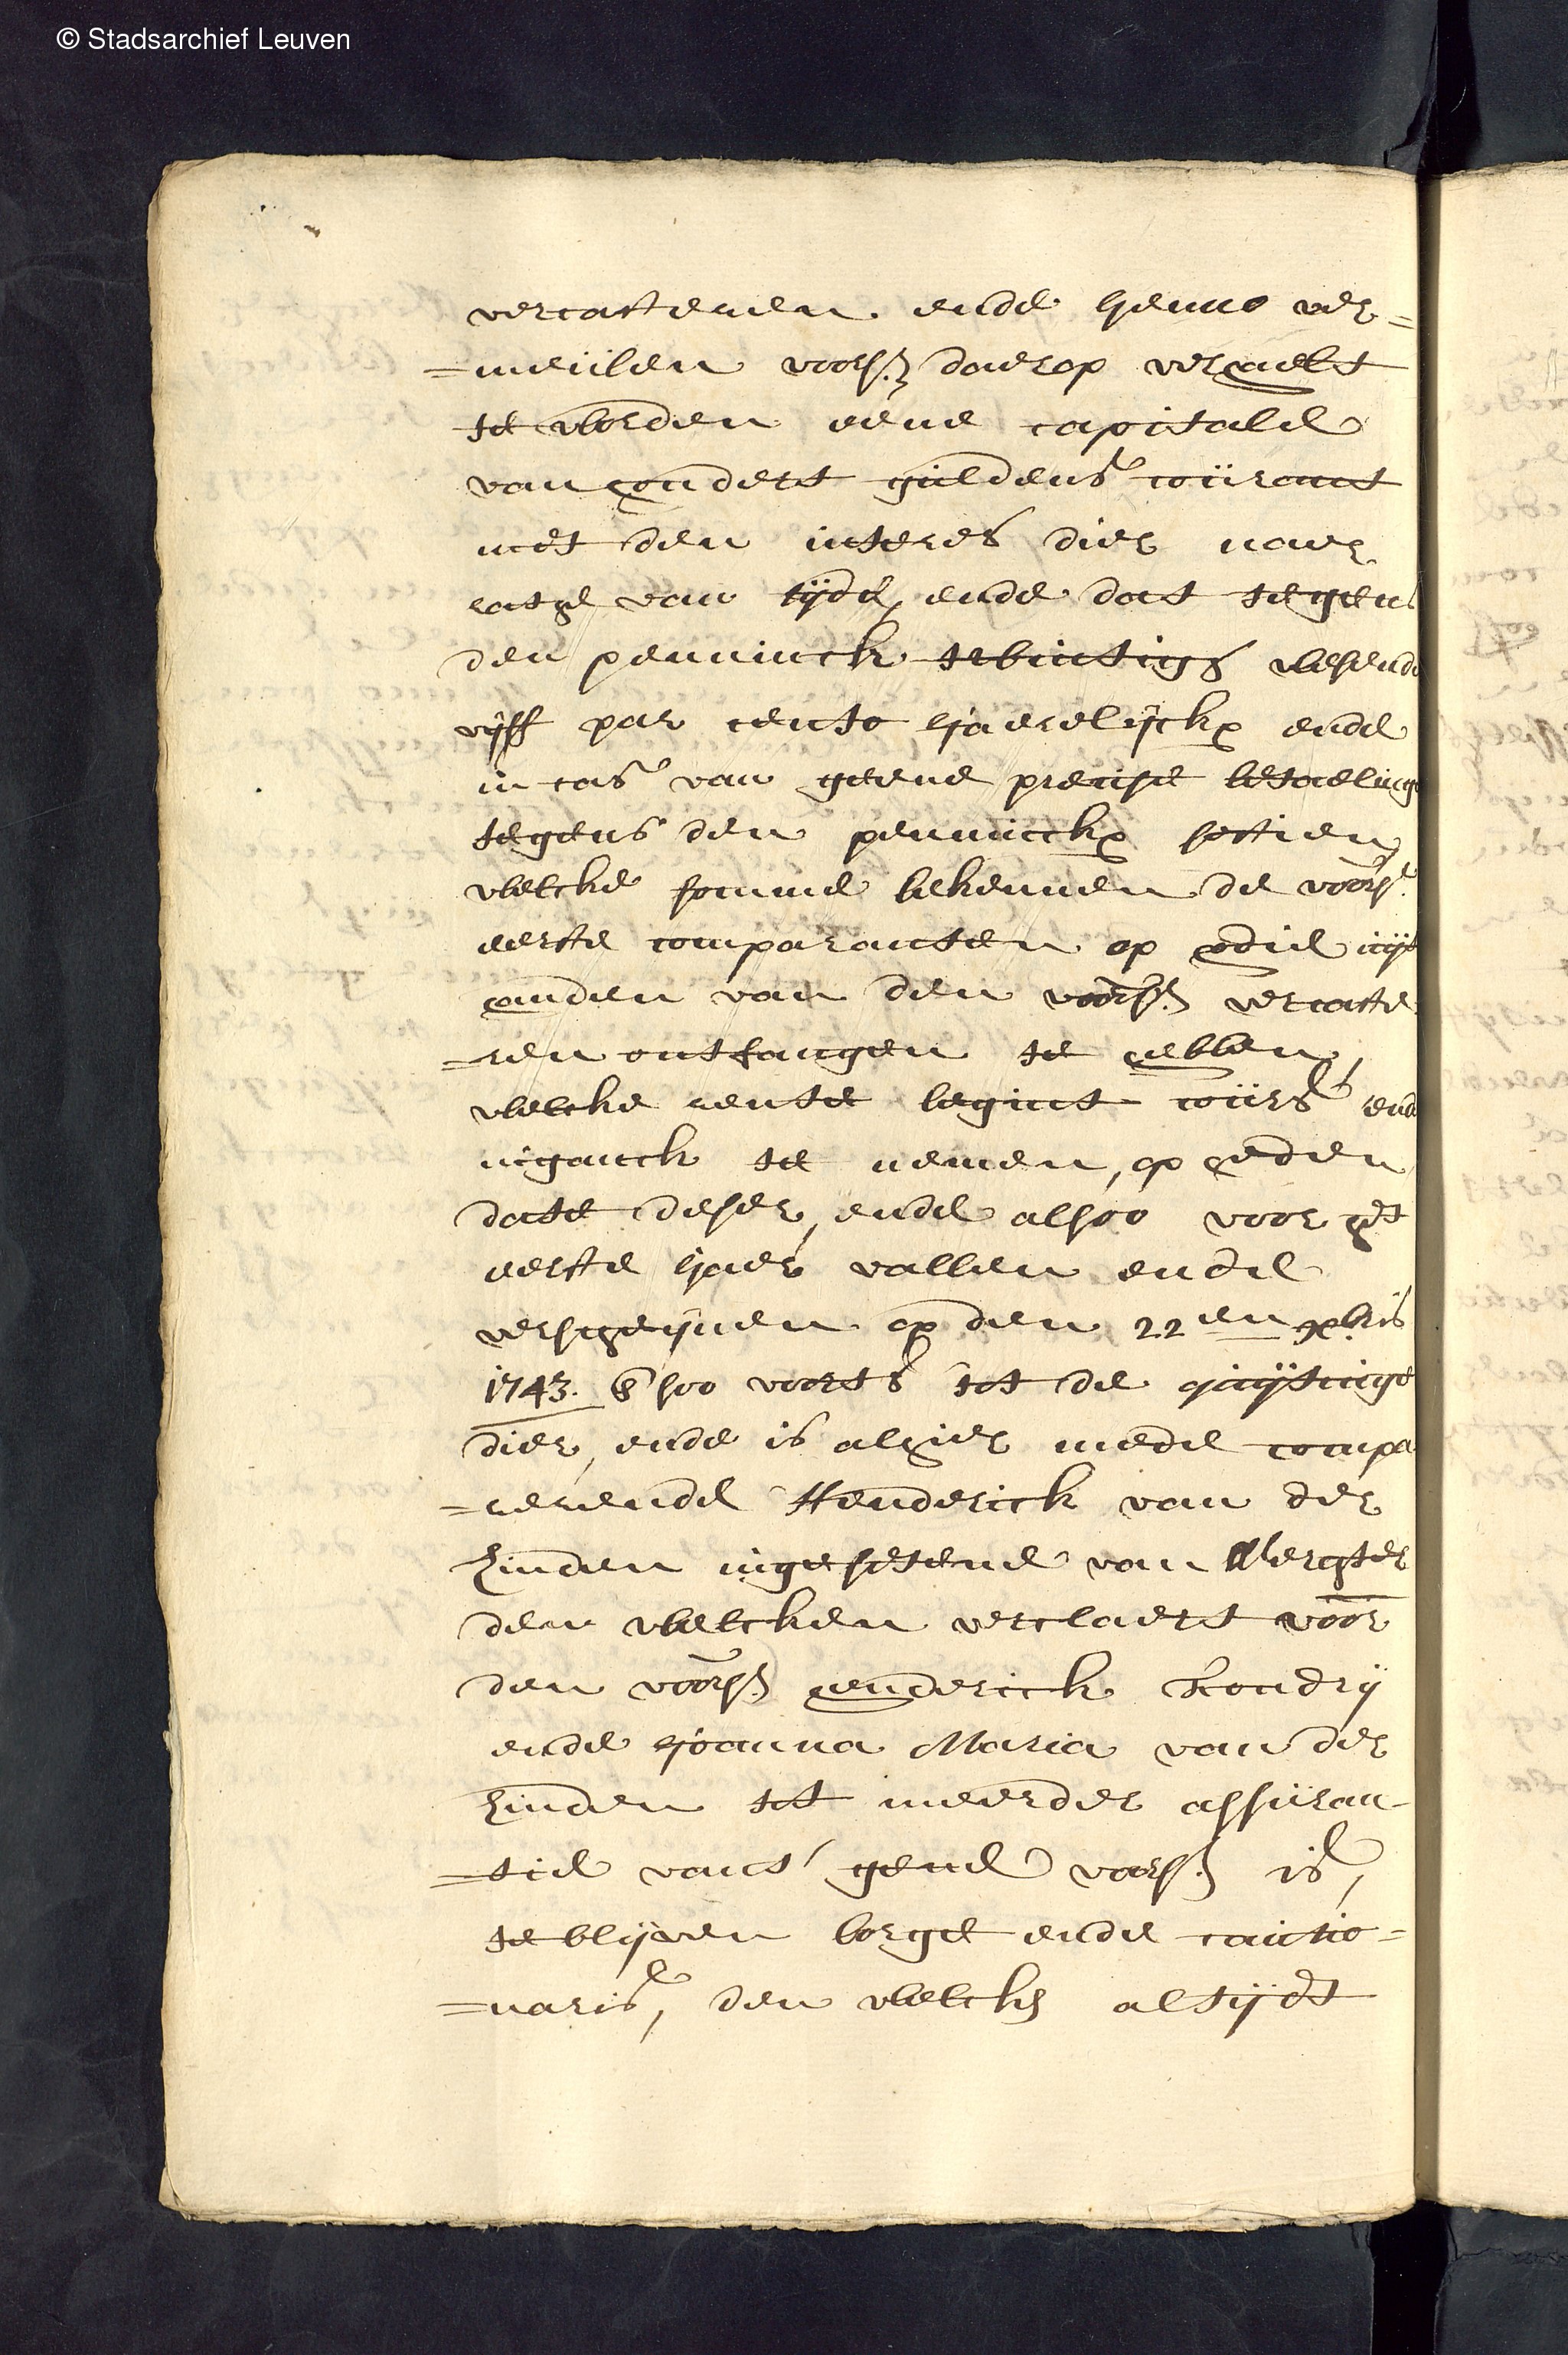 © Stadsarchief Leuven
vercasteren ende henno ver=
=meulen voors. daerop verhaelt
te worden eene capitale
van hondert guldens courant
met den interes dier naer
rathe van tijde, ende dat tegens
den penninck twintigh wesende
vijff par cento sjaerelijckx ende
in cas van geene precise betaelinge
tegens den penninckx sestien
welcke somme bekennen de voors.
eerste comparanten op hedie uijt
handen van den voors. vercaste
=ren ontfangen te hebben,
welcke rente begint cours ende
inganck te nemen, op heden
date deser, ende alsoo voor het
eerste sjaer vallen ende
verscheijnen op den 22en xbris
1743. & soo voorts tot de quijtinge
dier, ende is alhier mede compa
=rerende Hendrick van der
Linden ingesetene van Werchter
den welcken verclaert voor
den voors. henderick Londrij
ende sjoanna Maria van der
Linden tot meerder assuran-
=tie vant' gene voors. is,
te blijven borge ende cautio=
=naris, den welcken altijdt